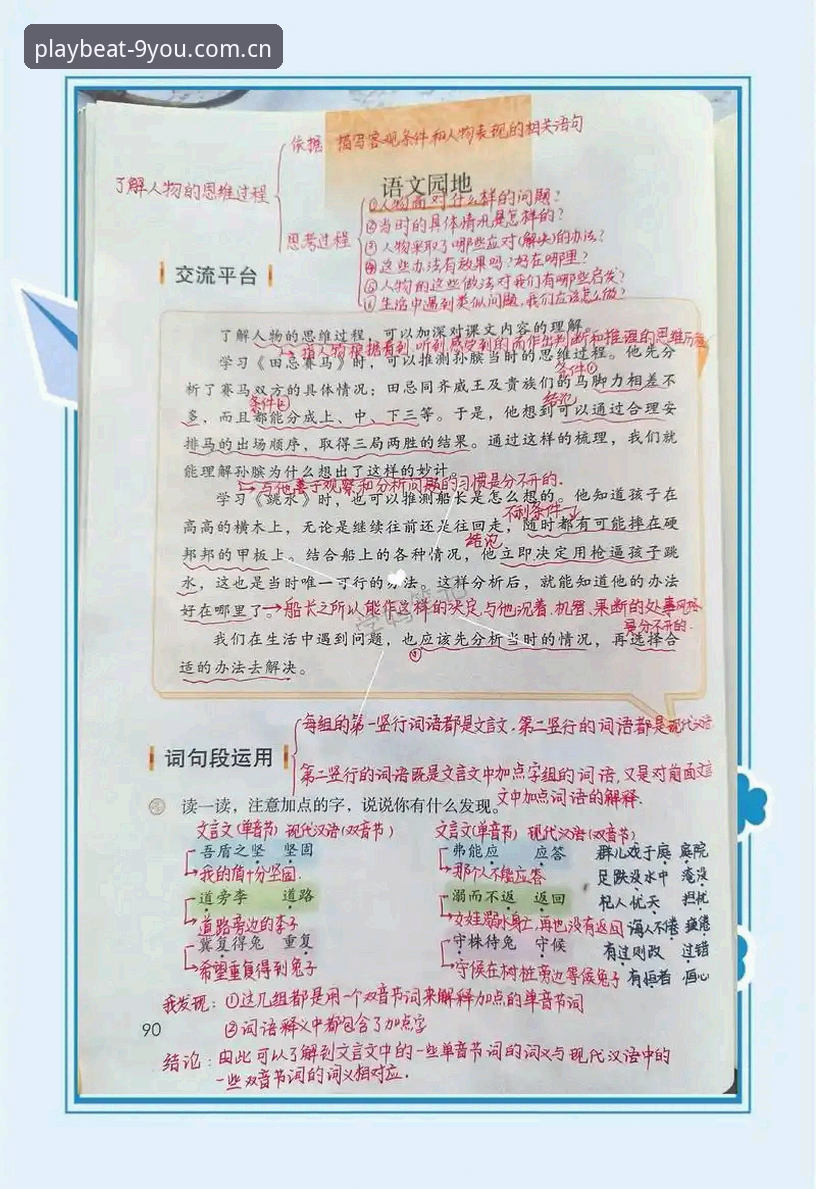 playbeat-9you.com.cn
依据 描写客观条件和人物表现的相关语句
了解人物的思维过程
语文园地
①人物面对什么样的问题?
②当时的具体情况是怎样的?
思考过程
③人物采取了哪些应对(解决)的办法?
④这些办法有效果吗?好在哪里?
⑤人物的这些做法对我们有哪些启发?
⑥生活中遇到类似问题,我们应该怎么做?
交流平台
了解人物的思维过程,可以加深对课文内容的理解。
指人物根据看到、听到、感受到的而作出判断和推理的思维历程
学习《田忌赛马》时,可以推测孙膑当时的思维过程。他先分
条件①
析了赛马双方的具体情况:田忌同齐威王及贵族们的马脚力相差不
条件② 结论
多,而且都能分成上、中、下三等。于是,他想到可以通过合理安
排马的出场顺序,取得三局两胜的结果。通过这样的梳理,我们就
能理解孙膑为什么想出了这样的妙计。
与他善于观察和分析问题的习惯是分不开的.
学习《跳水》时,也可以推测船长是怎么想的。他知道孩子在
不利条件
高高的横木上,无论是继续往前还是往回走,随时都有可能摔在硬
结论
邦邦的甲板上。结合船上的各种情况,他立即决定用枪逼孩子跳
水,这也是当时唯一可行的办法。这样分析后,就能知道他的办法
好在哪里了。船长之所以能作这样的决定,与他沉着、机智、果断的处事风格
是分不开的.
我们在生活中遇到问题,也应该先分析当时的情况,再选择合
适的办法去解决。
每组的第一竖行词语都是文言文,第二竖行的词语都是现代汉语
词句段运用
第二竖行的词语既是文言文中加点字组的词语,又是对前面文言
文中加点词语的解释.
读一读,注意加点的字,说说你有什么发现。
文言文(单音节) 现代汉语(双音节) 文言文(单音节) 现代汉语(双音节)
吾盾之坚 坚固 弗能应 应答 群儿戏于庭 庭院
我的盾十分坚固. 那个人不能应答 足跌没水中 淹没
道旁李 道路 溺而不返 返回 杞人忧天 担忧
道路旁边的李子 女娃溺水身亡,再也没有返回 诲人不倦 疲倦
冀复得兔 重复 守株待兔 守候 有过则改 过错
希望重复得到兔子 守候在树桩旁边等候兔子 有恒者 恒心
我发现:①这几组都是用一个双音节词来解释加点的单音节词
90
②词语释义中都包含了加点字
结论:由此可以了解到文言文中的一些单音节词的词义与现代汉语中的
一些双音节词的词义相对应.